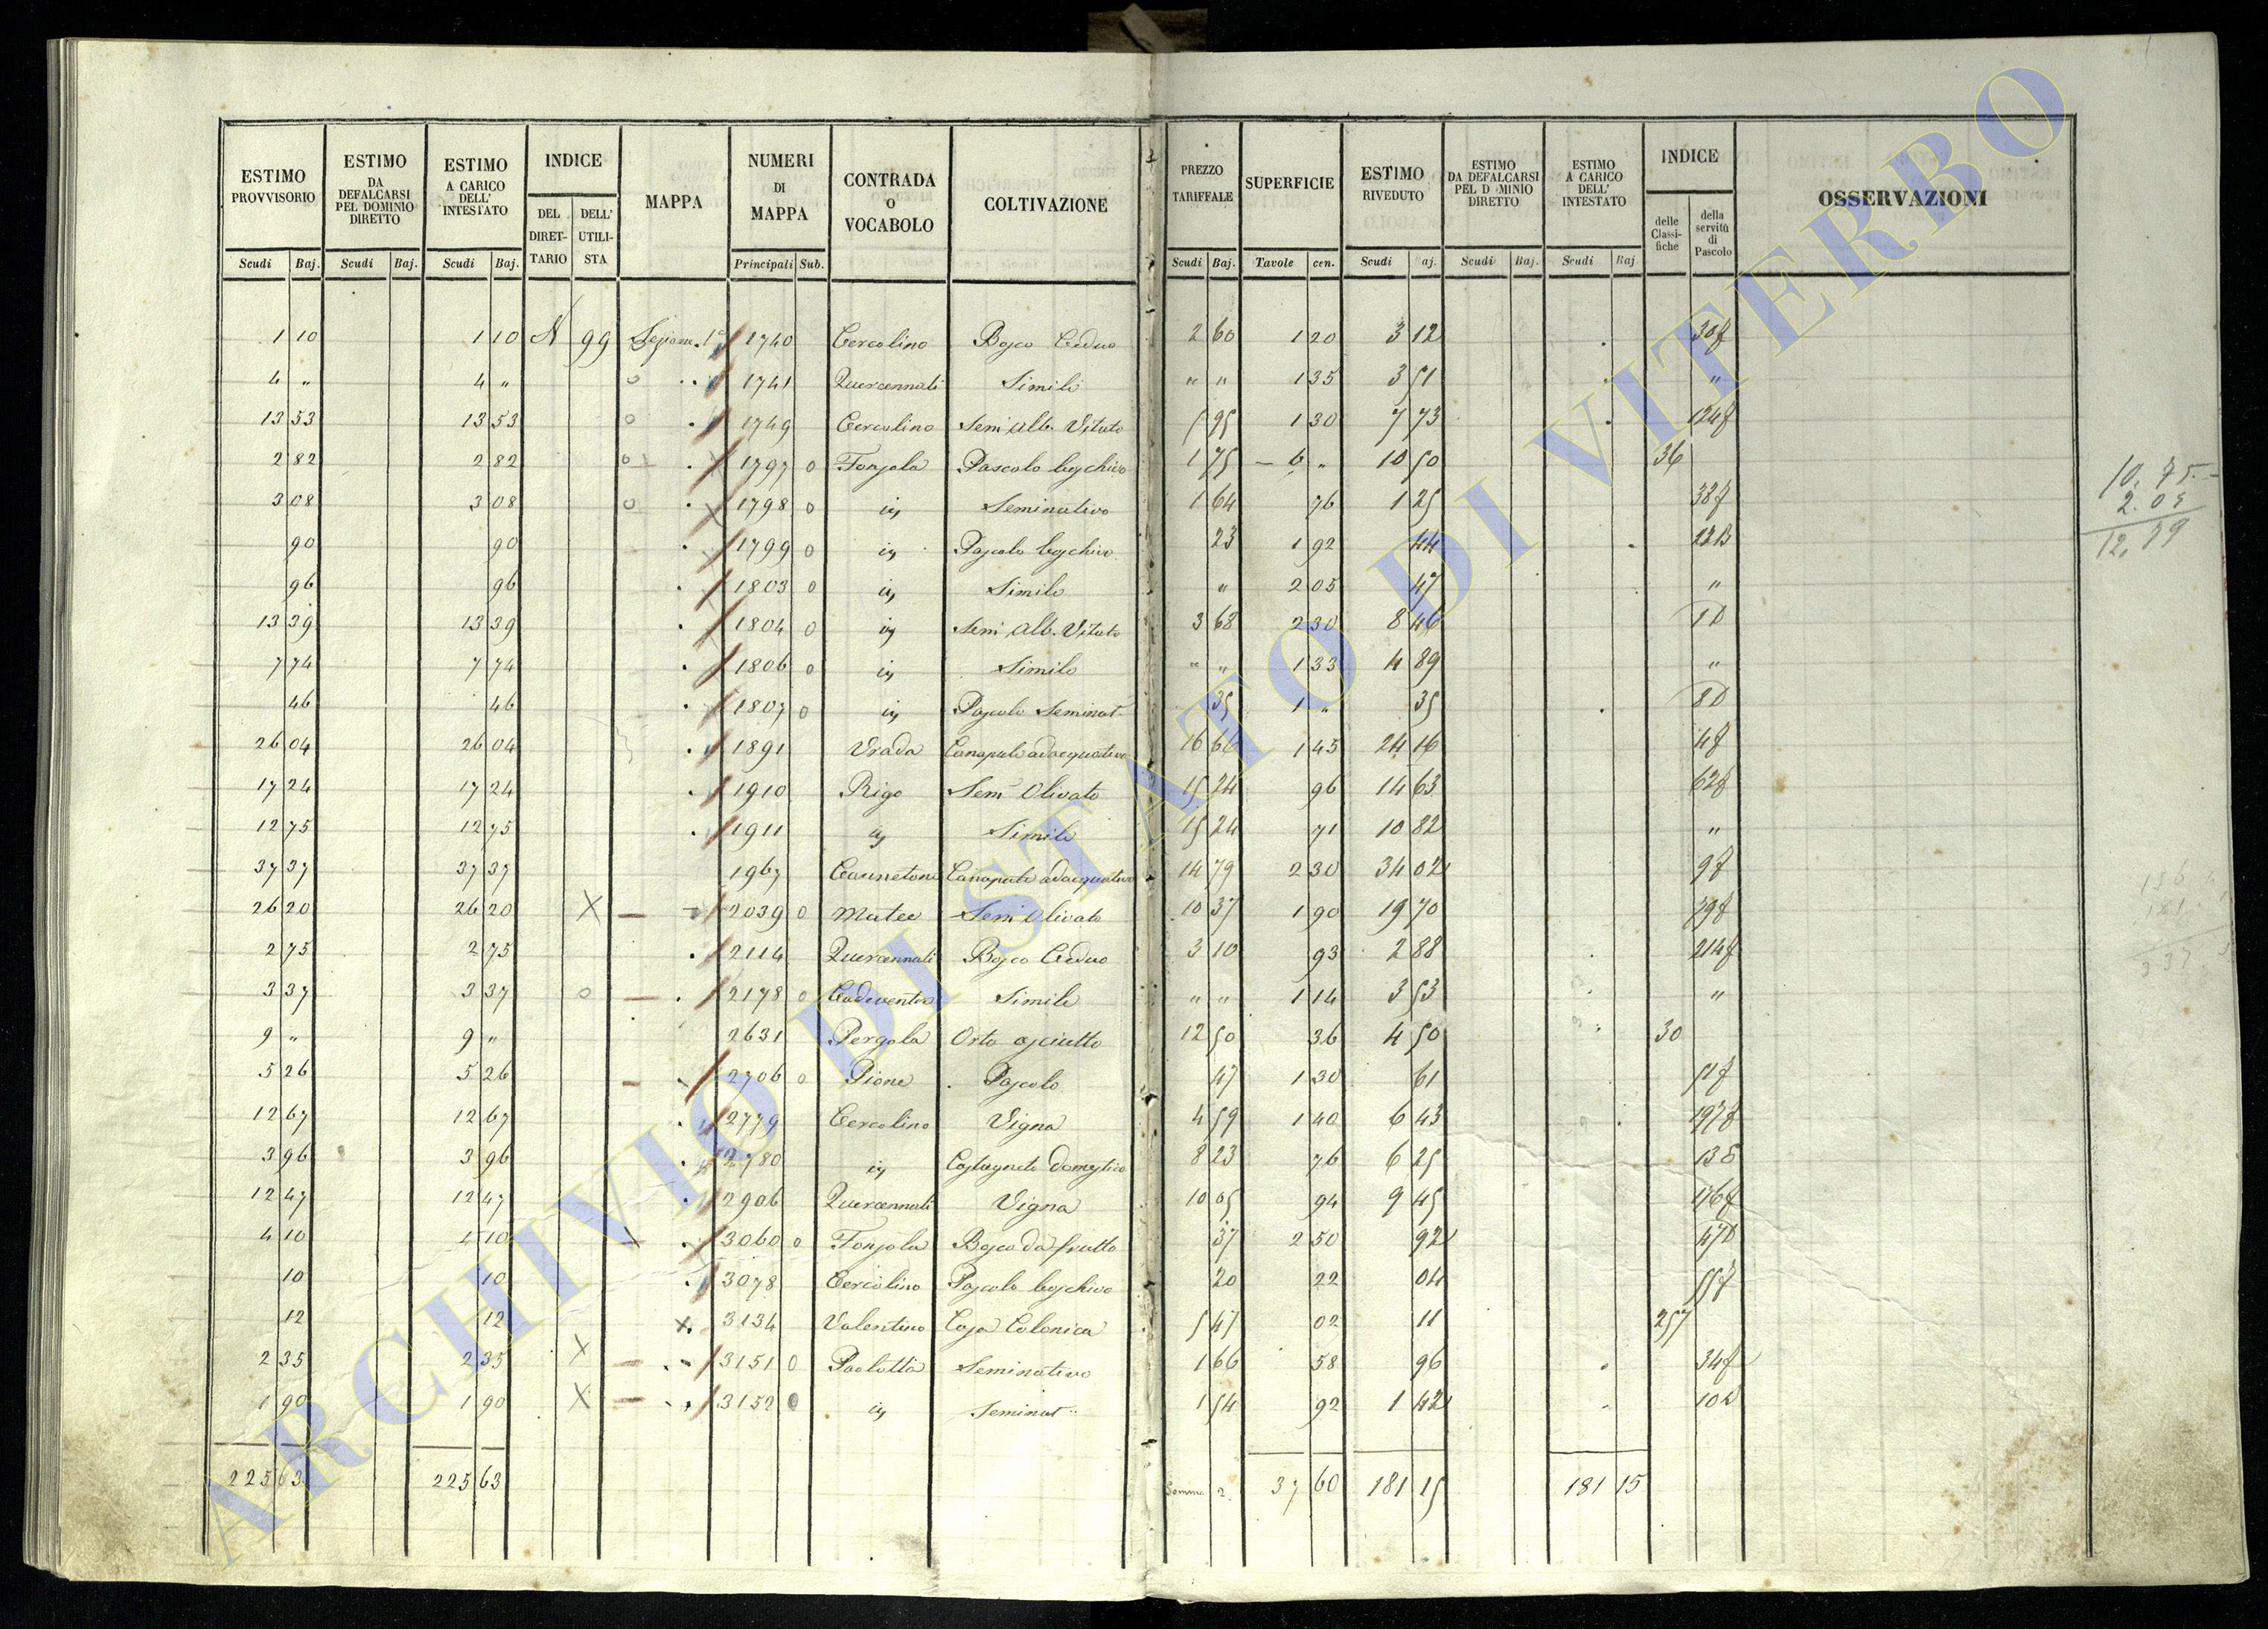 ESTIMO PROVVISORIO | ESTIMO DA DEFALCARSI PEL DOMINIO DIRETTO | ESTIMO A CARICO DELL' INTESTATO | INDICE | MAPPA | NUMERI DI MAPPA | CONTRADA O VOCABOLO | COLTIVAZIONE | PREZZO TARIFFALE | SUPERFICIE | ESTIMO RIVEDUTO | ESTIMO DA DEFALCARSI PEL D MINIO DIRETTO | ESTIMO A CARICO DELL' INTESTATO | INDICE | OSSERVAZIONI
DEL DIRETTARIO | DELL' UTILISTA | delle Classifiche | della servitù di Pascolo
Scudi | Baj. | Scudi | Baj. | Scudi | Baj. | Principali | Sub. | Scudi | Baj. | Tavole | cen. | Scudi | aj. | Scudi | Baj. | Scudi | Baj
1 10 | 1 10 | N 99 | Sezione 1ª | 1740 | Cercolino | Bosco Ceduo | 2 60 | 1 20 | 3 12 | 30f
4 " | 4 " | 1741 | Quercennali | Simile | " " | 1 35 | 3 51 | "
13 53 | 13 53 | 1749 | Cercolino | Sem Alb. Vitato | 5 95 | 1 30 | 7 73 | 124f
2 82 | 2 82 | 1797 0 | Fonzola | Pascolo boschivo | 1 75 | 6 " | 10 50 | 36
3 08 | 3 08 | 1798 0 | iv | Seminativo | 1 64 | 76 | 1 25 | 33f
90 | 90 | 1799 0 | iv | Pascolo boschivo | 23 | 1 92 | 44
96 | 96 | 1803 0 | iv | Simile | " | 2 05 | 47 | "
13 39 | 13 39 | 1804 0 | iv | Sem Alb. Vitato | 3 68 | 2 30 | 8 46
7 74 | 7 74 | 1806 0 | iv | Simile | " " | 1 33 | 4 89 | "
46 | 46 | 1807 0 | iv | Pascolo Seminat. | 35 | 1 " | 35 | 8D
26 04 | 26 04 | 1891 | Vrada | Canapule adacquativo | 16 66 | 1 45 | 24 16 | 4f
17 24 | 17 24 | 1910 | Rigo | Sem Olivato | 15 24 | 96 | 14 63 | 62f
12 75 | 12 75 | 1911 | iv | Simile | 15 24 | 71 | 10 82 | "
37 37 | 37 37 | 1967 | Cannetone | Canapule adacquativo | 14 79 | 2 30 | 34 02 | 9f
26 20 | 26 20 | X | 2039 0 | Matee | Sem Olivato | 10 37 | 1 90 | 19 70
2 75 | 2 75 | 2114 | Quercennali | Bosco Ceduo | 3 10 | 93 | 2 88 | 214f
3 37 | 3 37 | 0 | 2178 0 | Simile | " " | 1 14 | 3 53 | "
9 " | 9 " | 2631 | Pergola | Orto asciutto | 12 50 | 36 | 4 50 | 30
5 26 | 5 26 | 2706 0 | Pione | Pascolo | 47 | 1 30 | 61
12 67 | 12 67 | 2779 | Cercolino | Vigna | 4 59 | 1 40 | 6 43 | 197f
3 96 | 3 96 | 2780 | iv | Castagneto domestico | 8 23 | 76 | 6 25
12 47 | 12 47 | 2906 | Quercennali | Vigna | 10 05 | 94 | 9 45 | 176f
4 10 | 4 10 | 3060 0 | Fonzola | Bosco da frutto | 37 | 2 50 | 92 | 47D
10 | 10 | 3078 | Cercolino | Pascolo boschivo | 20 | 22 | 04 | 55f
12 | 12 | X | 3134 | Valentino | Casa Colonica | 5 47 | 02 | 11 | 257
2 35 | 2 35 | X | 3151 0 | Paolotta | Seminativo | 1 66 | 58 | 96 | 34f
1 90 | 1 90 | X | 3152 0 | iv | Seminat" | 1 54 | 92 | 1 42
225 63 | 225 63 | Somma 2. | 37 60 | 181 15 | 181 15
10, 75
2.05
ARCHIVIO DI STATO DI VITERBO